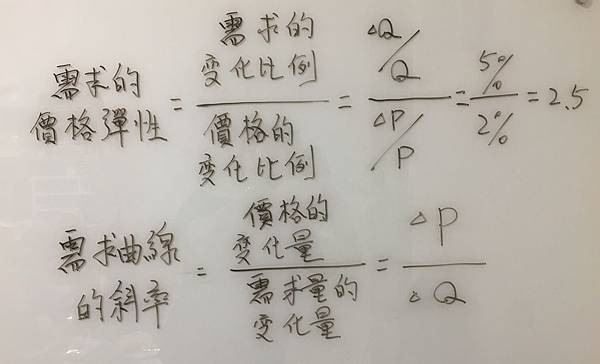 需求的
價格彈性
=
需求的
变化比例
價格的
变化比例
=
△Q/Q
△P/P
=
5%
2%
= 2.5
需求曲線
的斜率
=
價格的
变化量
需求量的
变化量
=
△P
△Q